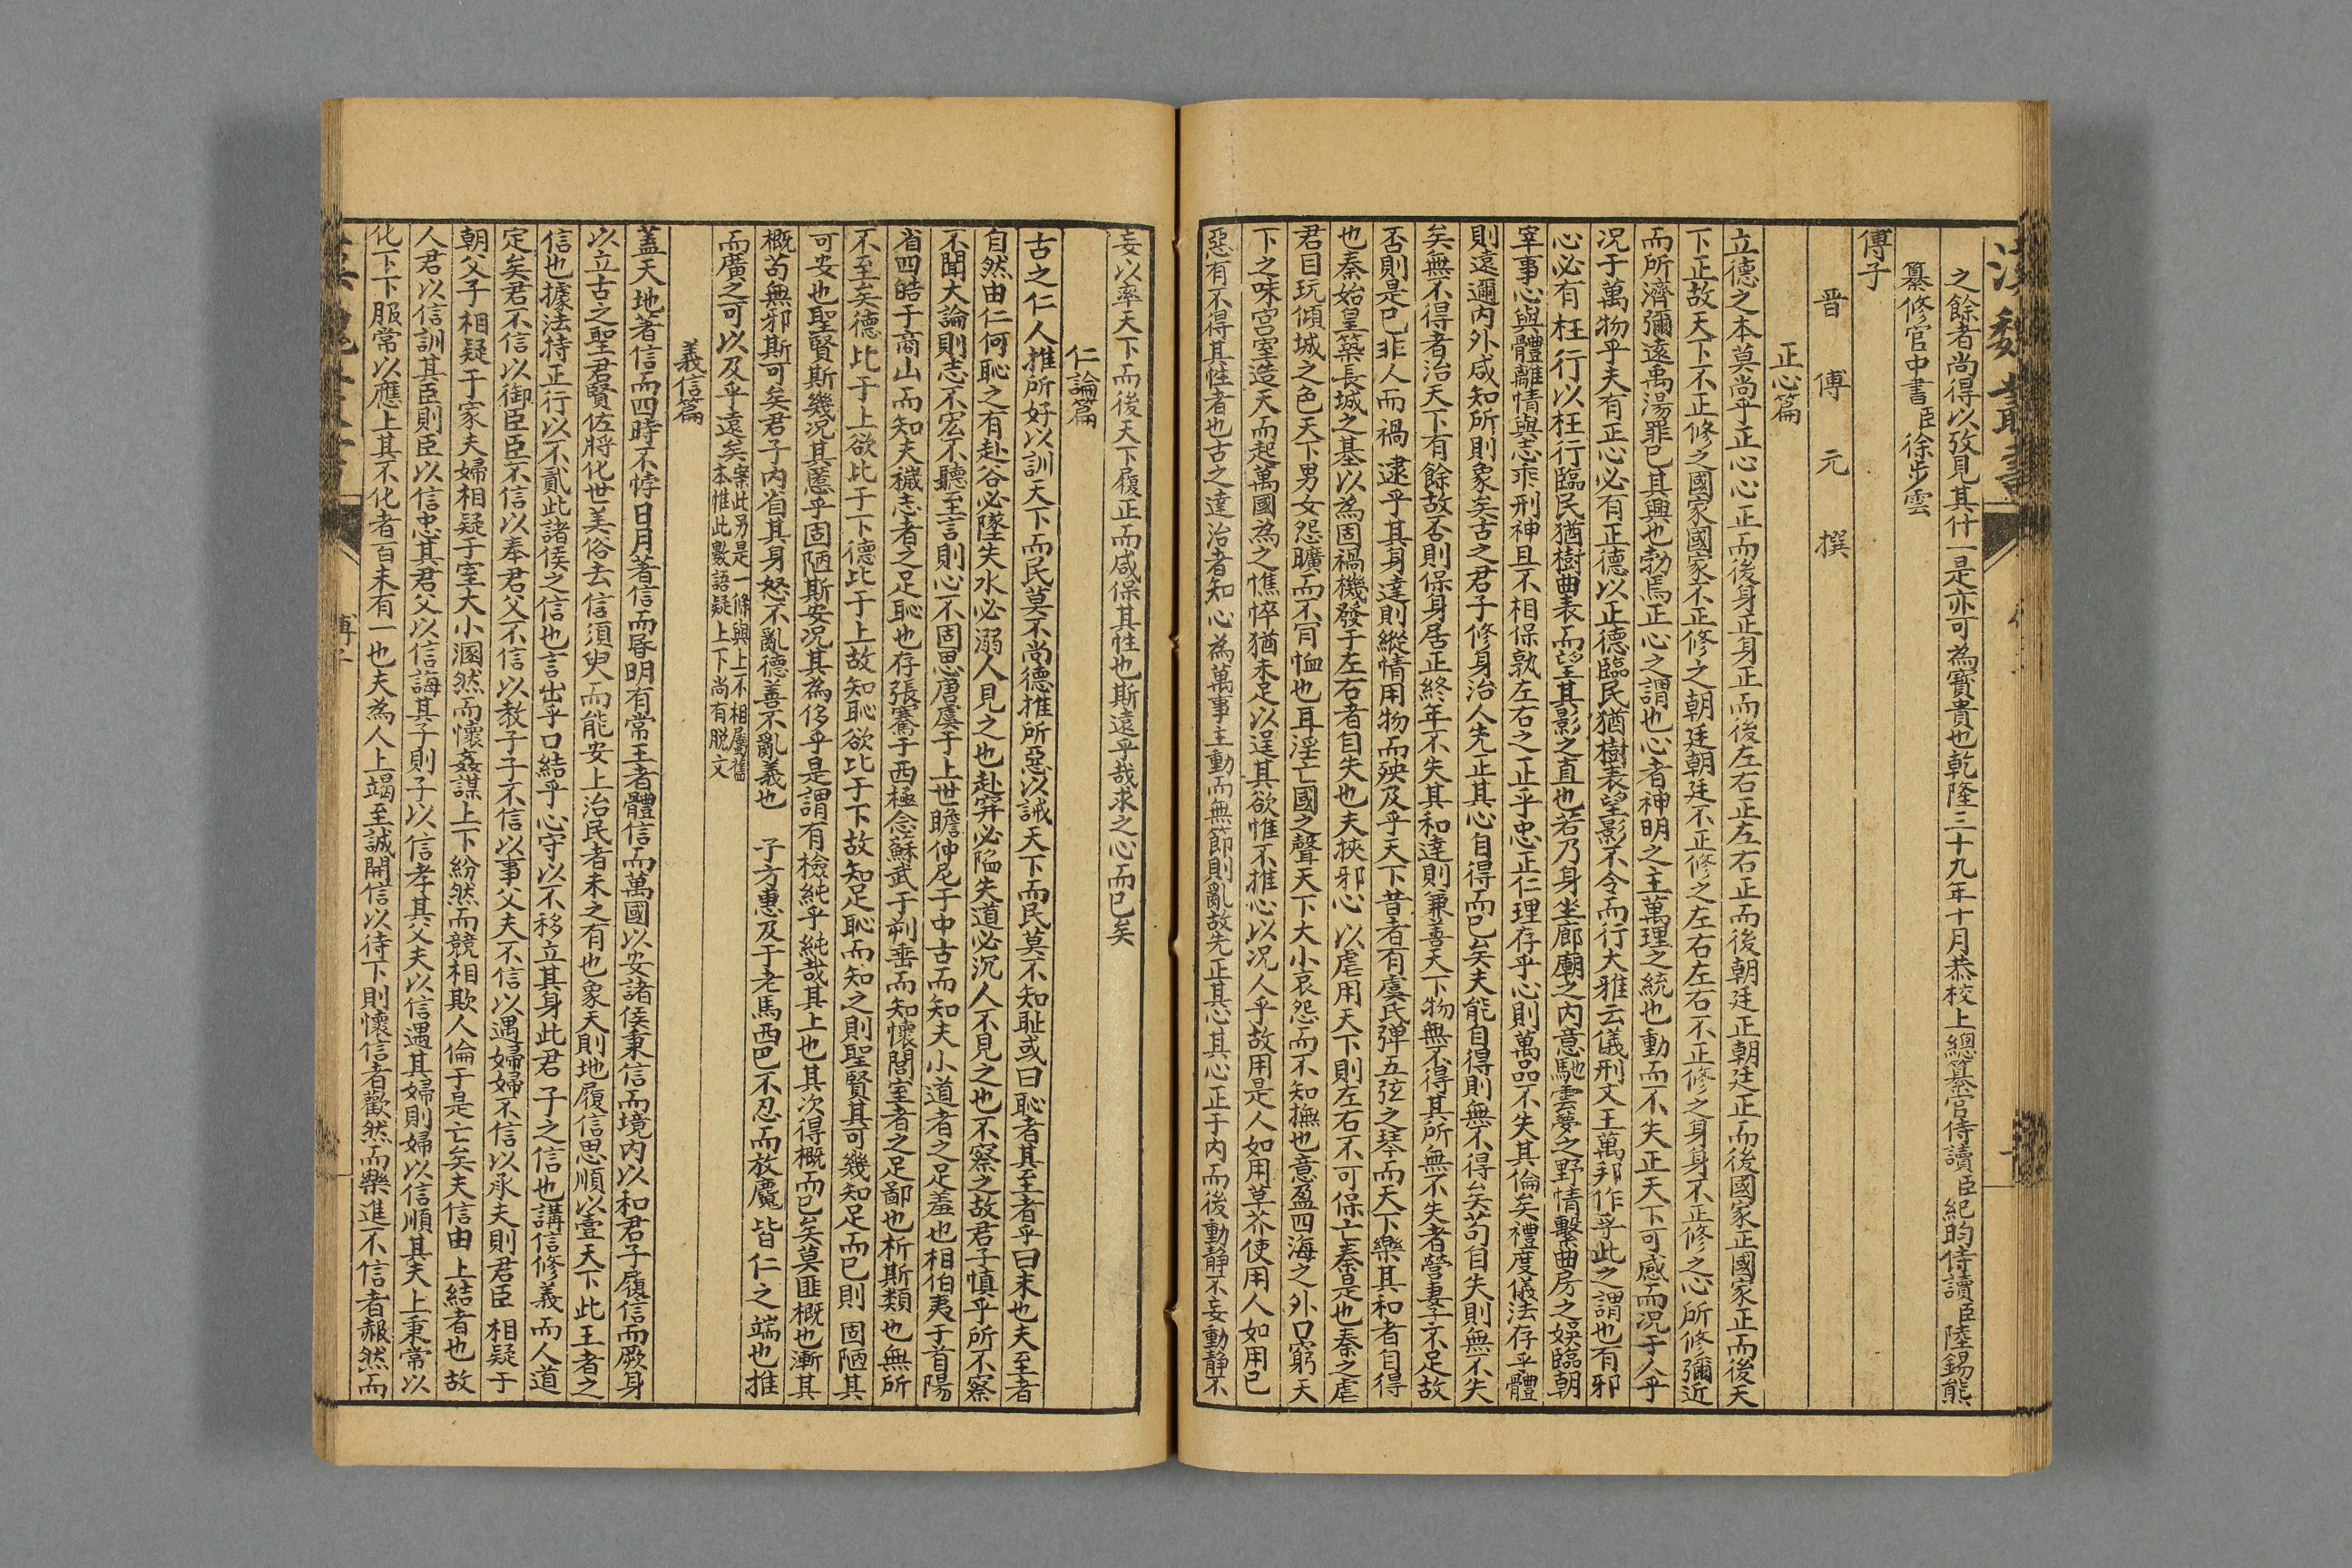 之餘者尚得以攷見其什一是亦可為寶貴也乾隆三十九年十月恭校上總纂官侍讀臣紀昀侍讀臣陸錫熊
纂修官中書臣徐步雲
傅子
晋傅元撰
正心篇
立德之本莫尚乎正心心正而後身正身正而後左右正左右正而後朝廷正朝廷正而後國家正國家正而後天
下正故天下不正修之國家國家不正修之朝廷朝廷不正修之左右左右不正修之身身不正修之心所修彌近
而所濟彌遠禹湯罪己其興也勃焉正心之謂也心者神明之主萬理之統也動而不失正天下可感而況于人乎
況于萬物乎夫有正心必有正德以正德臨民猶樹表望影不令而行大雅云儀刑文王萬邦作孚此之謂也有邪
心必有枉行以枉行臨民猶樹曲表而望其影之直也若乃身坐廊廟之內意馳雲夢之野情繫曲房之娛臨朝
宰事心與體離情與志乖刑神且不相保孰左右之正乎忠正仁理存乎心則萬品不失其倫矣禮度儀法存乎體
則遠邇內外咸知所則象矣古之君子修身治人先正其心自得而已矣夫能自得則無不得矣苟自失則無不失
矣無不得者治天下有餘故否則保身居正終年不失其和達則兼善天下物無不得其所無不失者營妻子不足故
否則是己非人而禍逮乎其身達則縱情用物而殃及乎天下昔者有虞氏彈五弦之琴而天下樂其和者自得
也秦始皇築長城之基以為固禍機發于左右者自失也夫挾邪心以虐用天下則左右不可保亡秦是也秦之虐
君目玩傾城之色天下男女怨曠而不肯恤也耳淫亡國之聲天下大小哀怨而不知撫也意盈四海之外口窮天
下之味宮室造天而起萬國為之憔悴猶未足以逞其欲惟不推心以況人乎故用是人如用草芥使用人如用己
惡有不得其性者也古之達治者知心為萬事主動而無節則亂故先正其心其心正于內而後動靜不妄動靜不
妄以率天下而後天下履正而咸保其性也斯遠乎哉求之心而已矣
仁論篇
古之仁人推所好以訓天下而民莫不尚德推所惡以誡天下而民莫不知耻或曰恥者其至者乎曰未也夫至者
自然由仁何恥之有赴谷必墜失水必溺人見之也赴穽必陷失道必沉人不見之也不察之故君子慎乎所不察
不聞大論則志不宏不聽至言則心不固思唐虞于上世瞻仲尼于中古而知夫小道者之足羞也相伯夷于首陽
省四皓于商山而知夫穢志者之足恥也存張騫于西極念蘇武于朔垂而知懷閭室者之足鄙也析斯類也無所
不至矣德比于上欲比于下德比于上故知恥欲比于下故知足恥而知之則聖賢其可幾知足而已則固陋其
可安也聖賢斯幾況其慝乎固陋斯安況其為侈乎是謂有檢純乎純哉其上也其次得概而已矣莫匪概也漸其
概苟無邪斯可矣君子內省其身怒不亂德喜不亂義也 子方惠及于老馬西巴不忍而放麑皆仁之端也推
而廣之可以及乎遠矣案此另是一條與上不相屬舊本惟此數語疑上下尚有脫文
義信篇
蓋天地著信而四時不悖日月著信而昏明有常王者體信而萬國以安諸侯秉信而境內以和君子履信而厥身
以立古之聖君賢佐將化世美俗去信須臾而能安上治民者未之有也象天則地履信思順以壹天下此王者之
信也據法持正行以不貳此諸侯之信也言出乎口結乎心守以不移立其身此君子之信也講信修義而人道
定矣君不信以御臣臣不信以奉君父不信以教子子不信以事父夫不信以遇婦婦不信以承夫則君臣相疑于
朝父子相疑于家夫婦相疑于室大小溷然而懷姦謀上下紛然而競相欺人倫于是亡矣夫信由上結者也故
人君以信訓其臣則臣以信忠其君父以信誨其子則子以信孝其父夫以信遇其婦則婦以信順其夫上秉常以
化下下服常以應上其不化者百未有一也夫為人上竭至誠開信以待下則懷信者歡然而樂進不信者赧然而
傅子